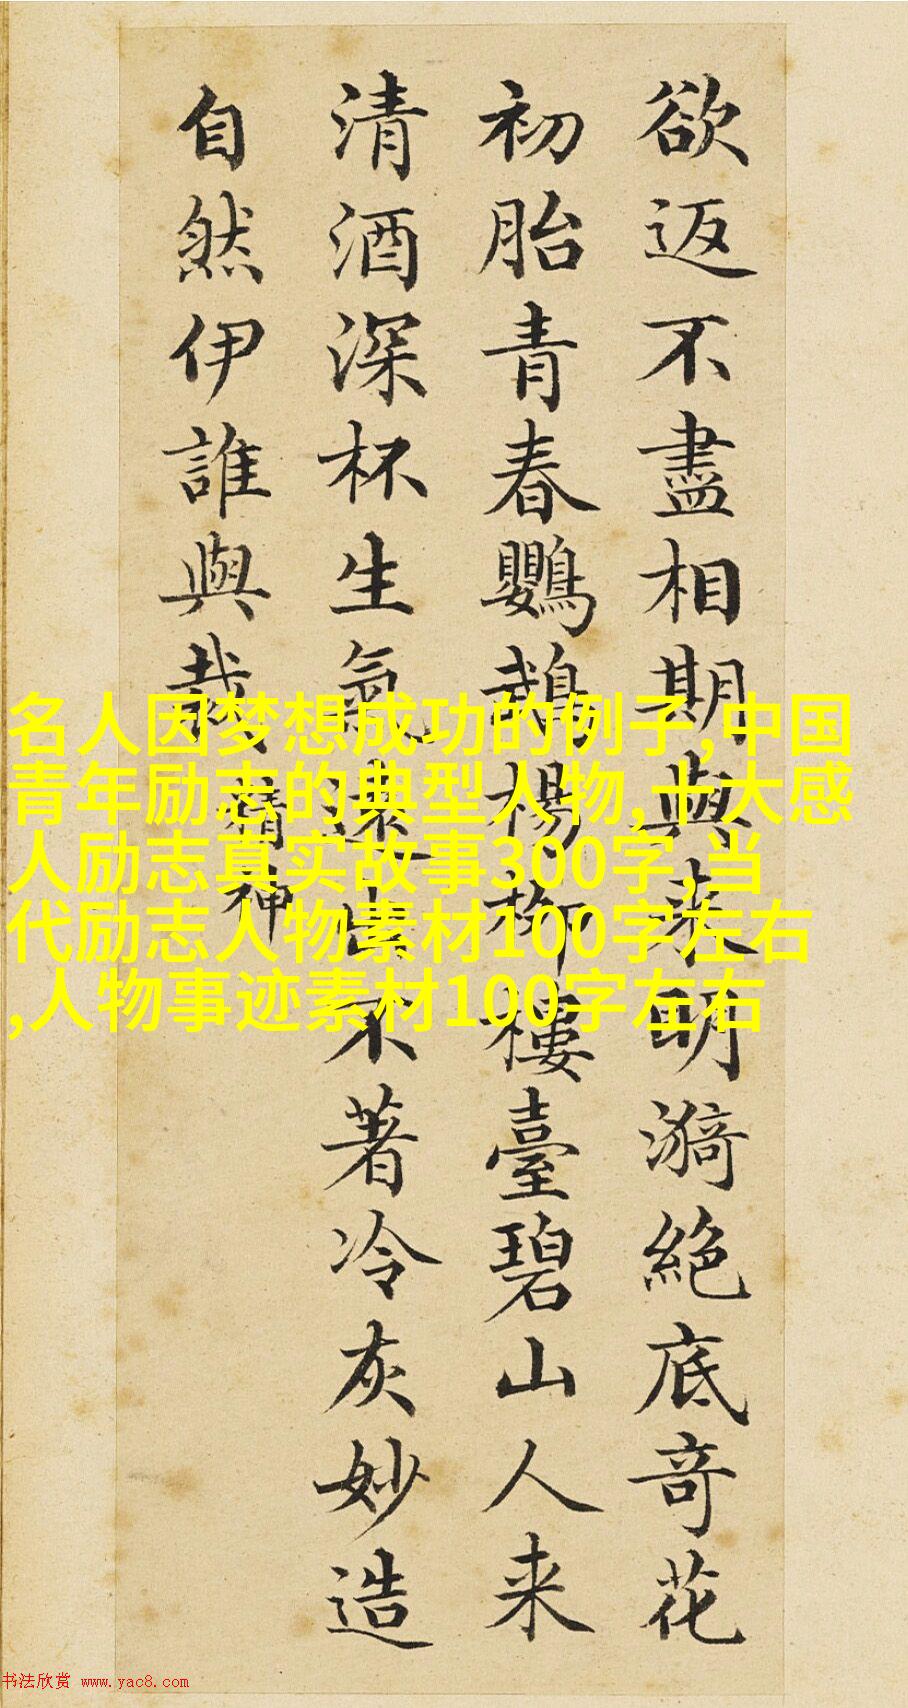 欲返不盡相期與來明漪絕底奇花
初胎青春鸚鵡楊柳樓臺碧山人来
清酒深杯生氣遠出不著冷灰妙造
自然伊誰與裁
精神
名人因梦想成功的例子,中国
青年励志的典型人物,十大感
人励志真实故事300字,当
代励志人物素材100字左右
,人物事迹素材100字左右
书法欣赏 www.yac8.com